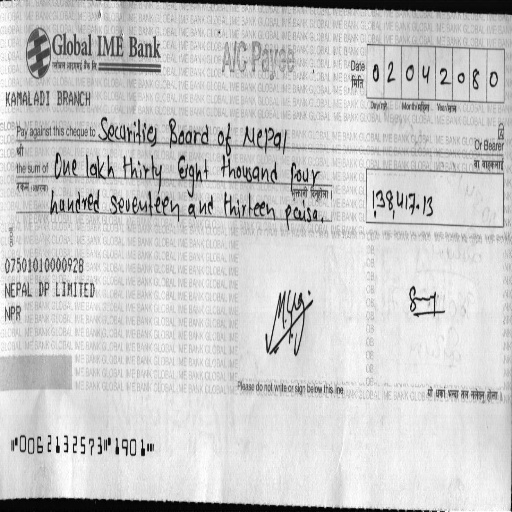 Global IME Bank
ग्लोबल आइएमई बैंक लि.
A/C Payee
Date 0 2 0 4 2 0 8 0
मिति
Day/गते Month/महिना Year/साल
KAMALADI BRANCH
Pay against this cheque to Securities Board of Nepal
Or Bearer
श्री
वा वाहकलाई
the sum of One lakh thirty Eight thousand four
hundred seventeen and thirteen paisa.
1,38,417.13
07501010000928
NEPAL DP LIMITED
NPR
Please do not write or sign below this line
यो धर्का भन्दा तल नलेख्नु होला ।
⑈0062132573⑈1901⑈